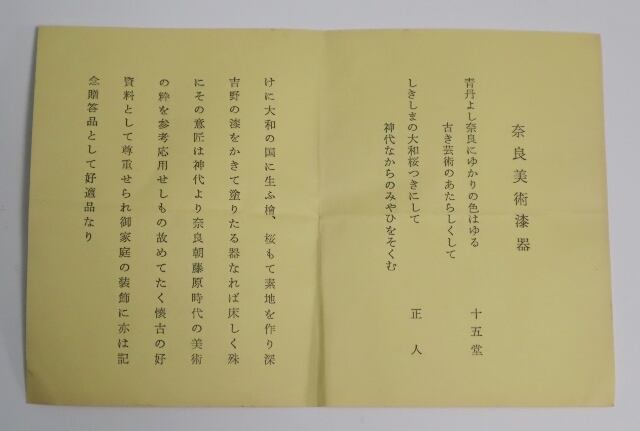 奈良美術漆器
青丹よし奈良にゆかりの色はゆる
古き芸術のあたらしくして 十五堂
しきしまの大和桜つきにして
神代なからのみやひをそくむ 正人
けに大和の国に生ふ檜、桜もて素地を作り深
吉野の漆をかきて塗りたる器なれば床しく殊
にその意匠は神代より奈良朝藤原時代の美術
の粋を参考応用せしもの故めてたく懐古の好
資料として尊重せられ御家庭の装飾に亦は記
念贈答品として好適品なり